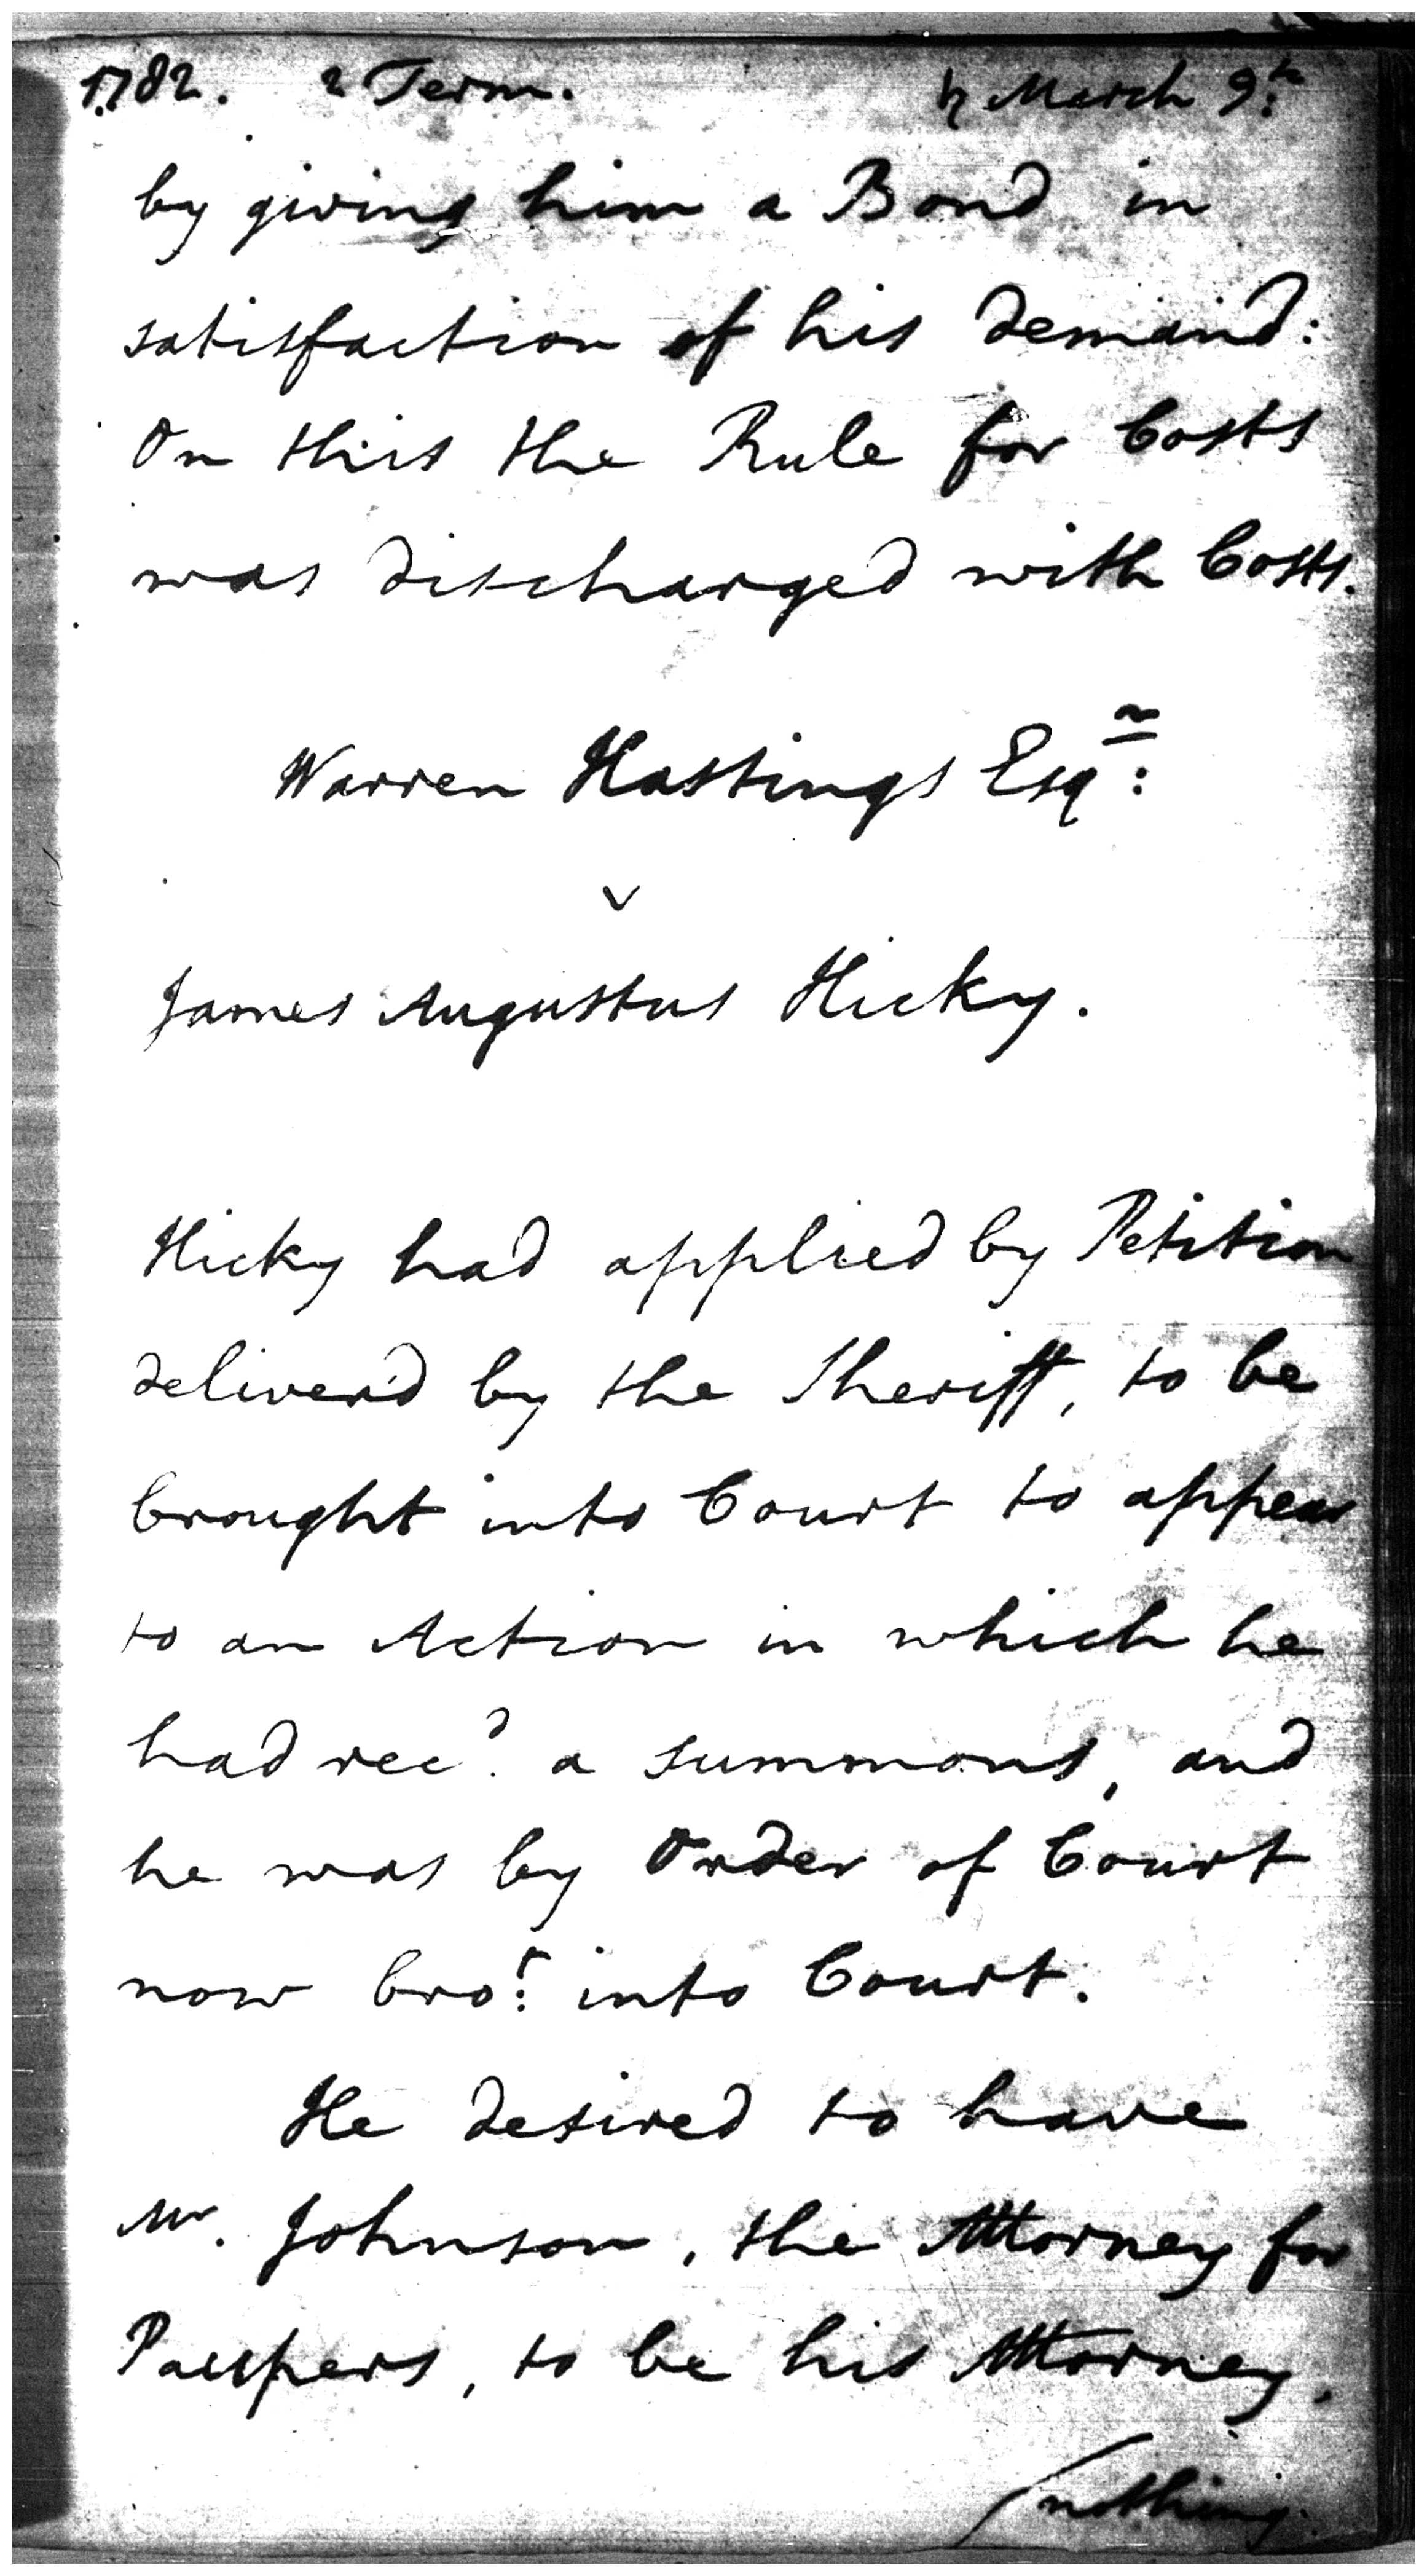 1782. 2 Term. ♄ March 9th
by giving him a Bond in
satisfaction of his demand:
On this the Rule for Costs
was discharged with Costs.
Warren Hastings Esqr:
v
James Augustus Hicky.
Hicky had applied by Petition
deliver'd by the Sheriff, to be
brought into Court to appear
to an Action in which he
had recd. a summons, and
he was by Order of Court
now brot: into Court.
He desired to have
Mr. Johnson, the Attorney for
Paupers, to be his Attorney.
/nothing.